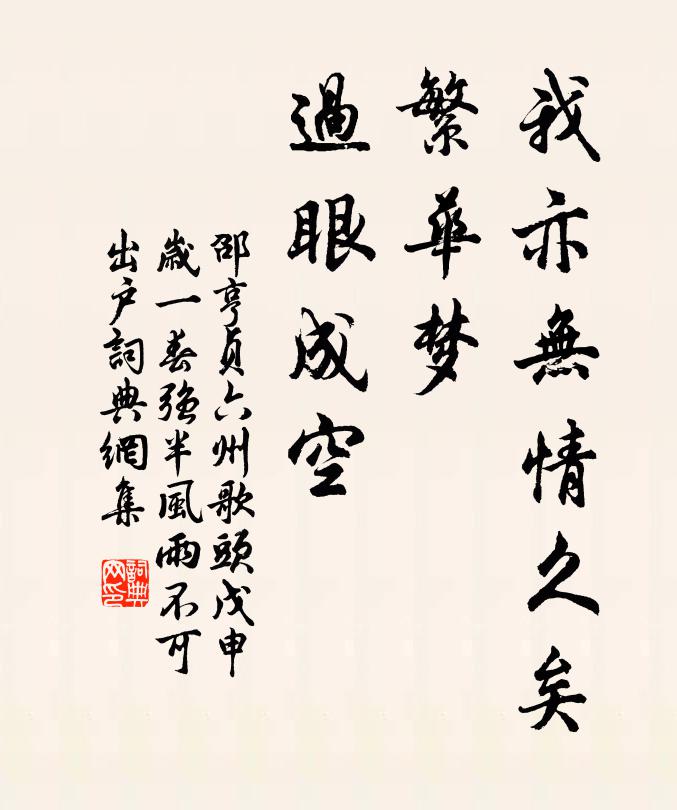 我亦無情久矣
繁華梦
過眼成空
邵亨貞六州歌頭戊申
歲一春強半風雨不可
出戶詞典網集
詞典
网印